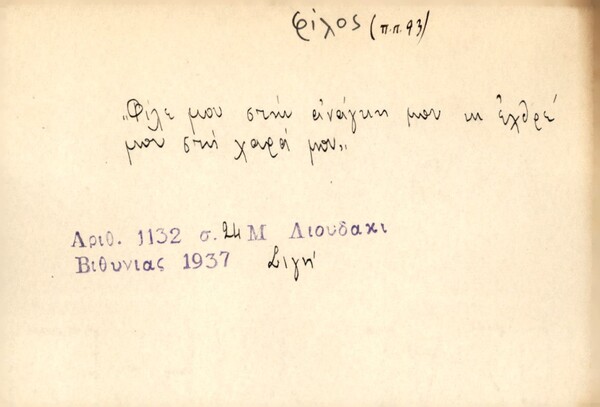 φίλος (π.π. 93)
„Φίλε μου στήν ἀνάγκη μου κι ἐχθρέ
μου στή χαρά μου„
Αριθ. 1132 σ. 24 Μ Λιουδακι
Βιθυνιας 1937 Σιγή